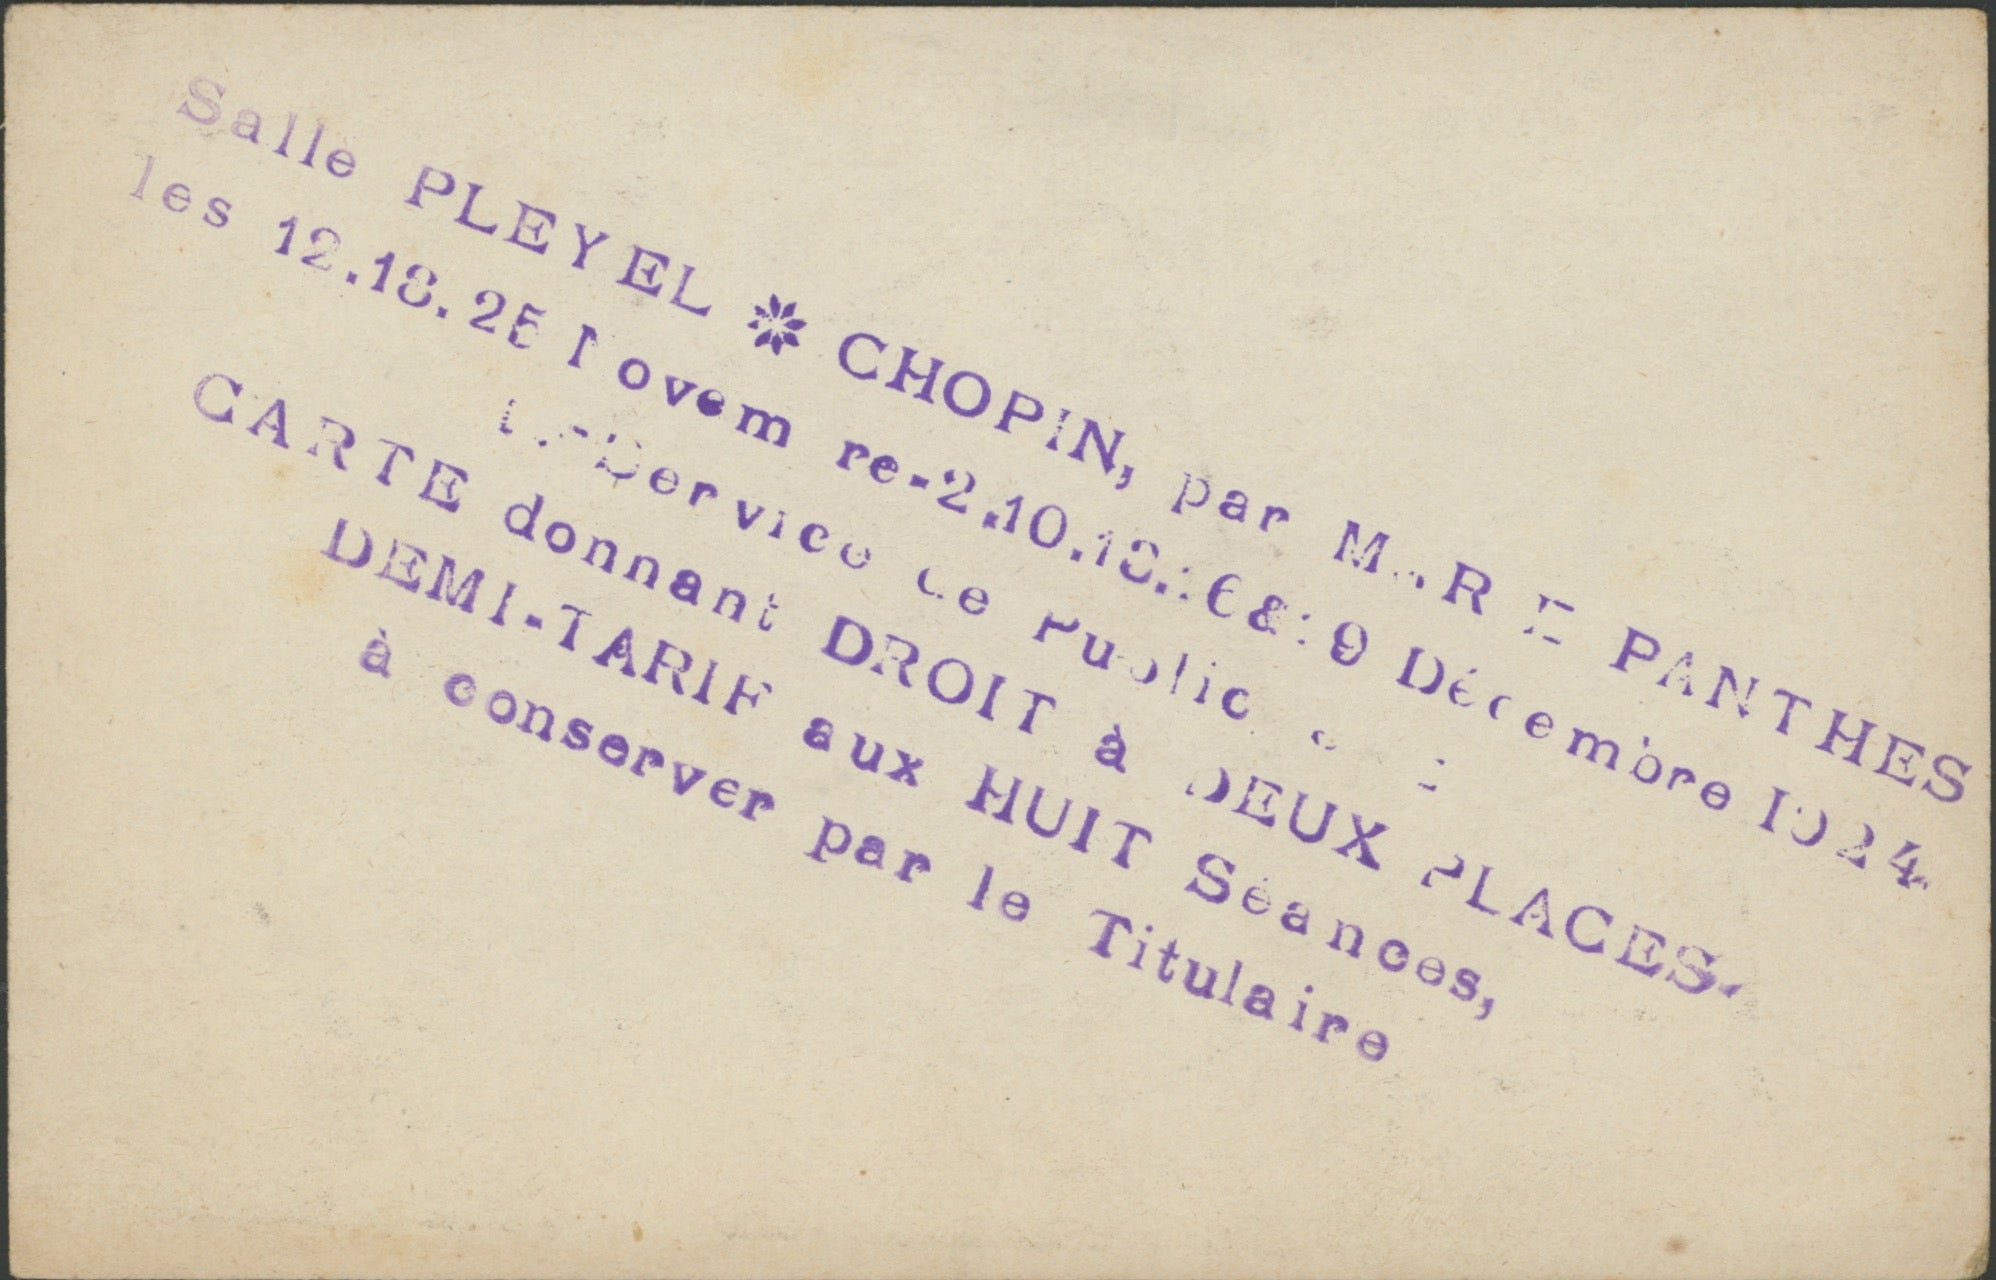 Salle PLEYEL * CHOPIN, par MARIE PANTHES
les 12.18.25 Novembre-2.10.13.16&19 Décembre 1924
Service de Public
CARTE donnant DROIT à DEUX PLACES
DEMI-TARIF aux HUIT Séances,
à conserver par le Titulaire